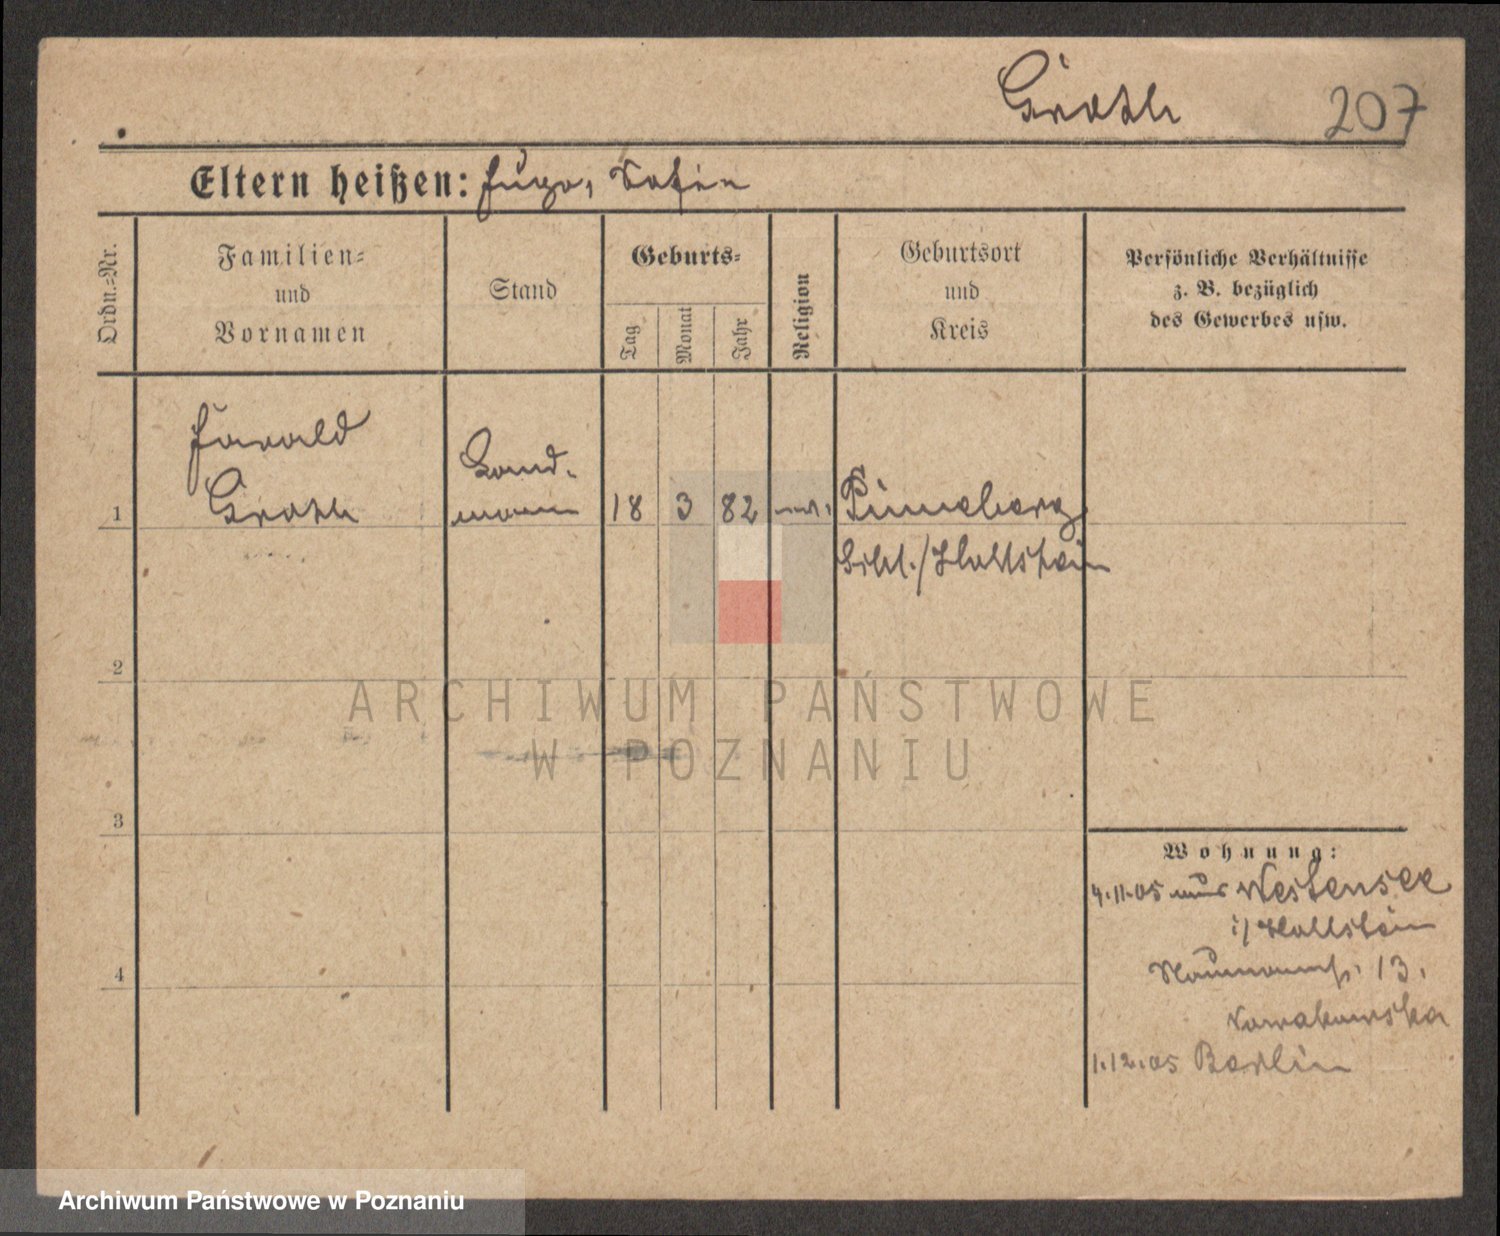 Groth 207
Eltern heißen: Hugo, Sofie
Ordn.=Nr.
Familien=
und
Vornamen
Stand
Geburts=
Tag
Monat
Jahr
Religion
Geburtsort
und
Kreis
Persönliche Verhältnisse
z. B. bezüglich
des Gewerbes usw.
Harald
Groth
Land-
mann
1
18 3 82 ev. Pinneberg
Schl./Hollstein
2
3
4
Wohnung:
4.11.05 aus Westensee
i/Hollstein
Naumannstr. 13.
Nowakowska
1.12.05 Berlin
ARCHIWUM PAŃSTWOWE
W POZNANIU
Archiwum Państwowe w Poznaniu